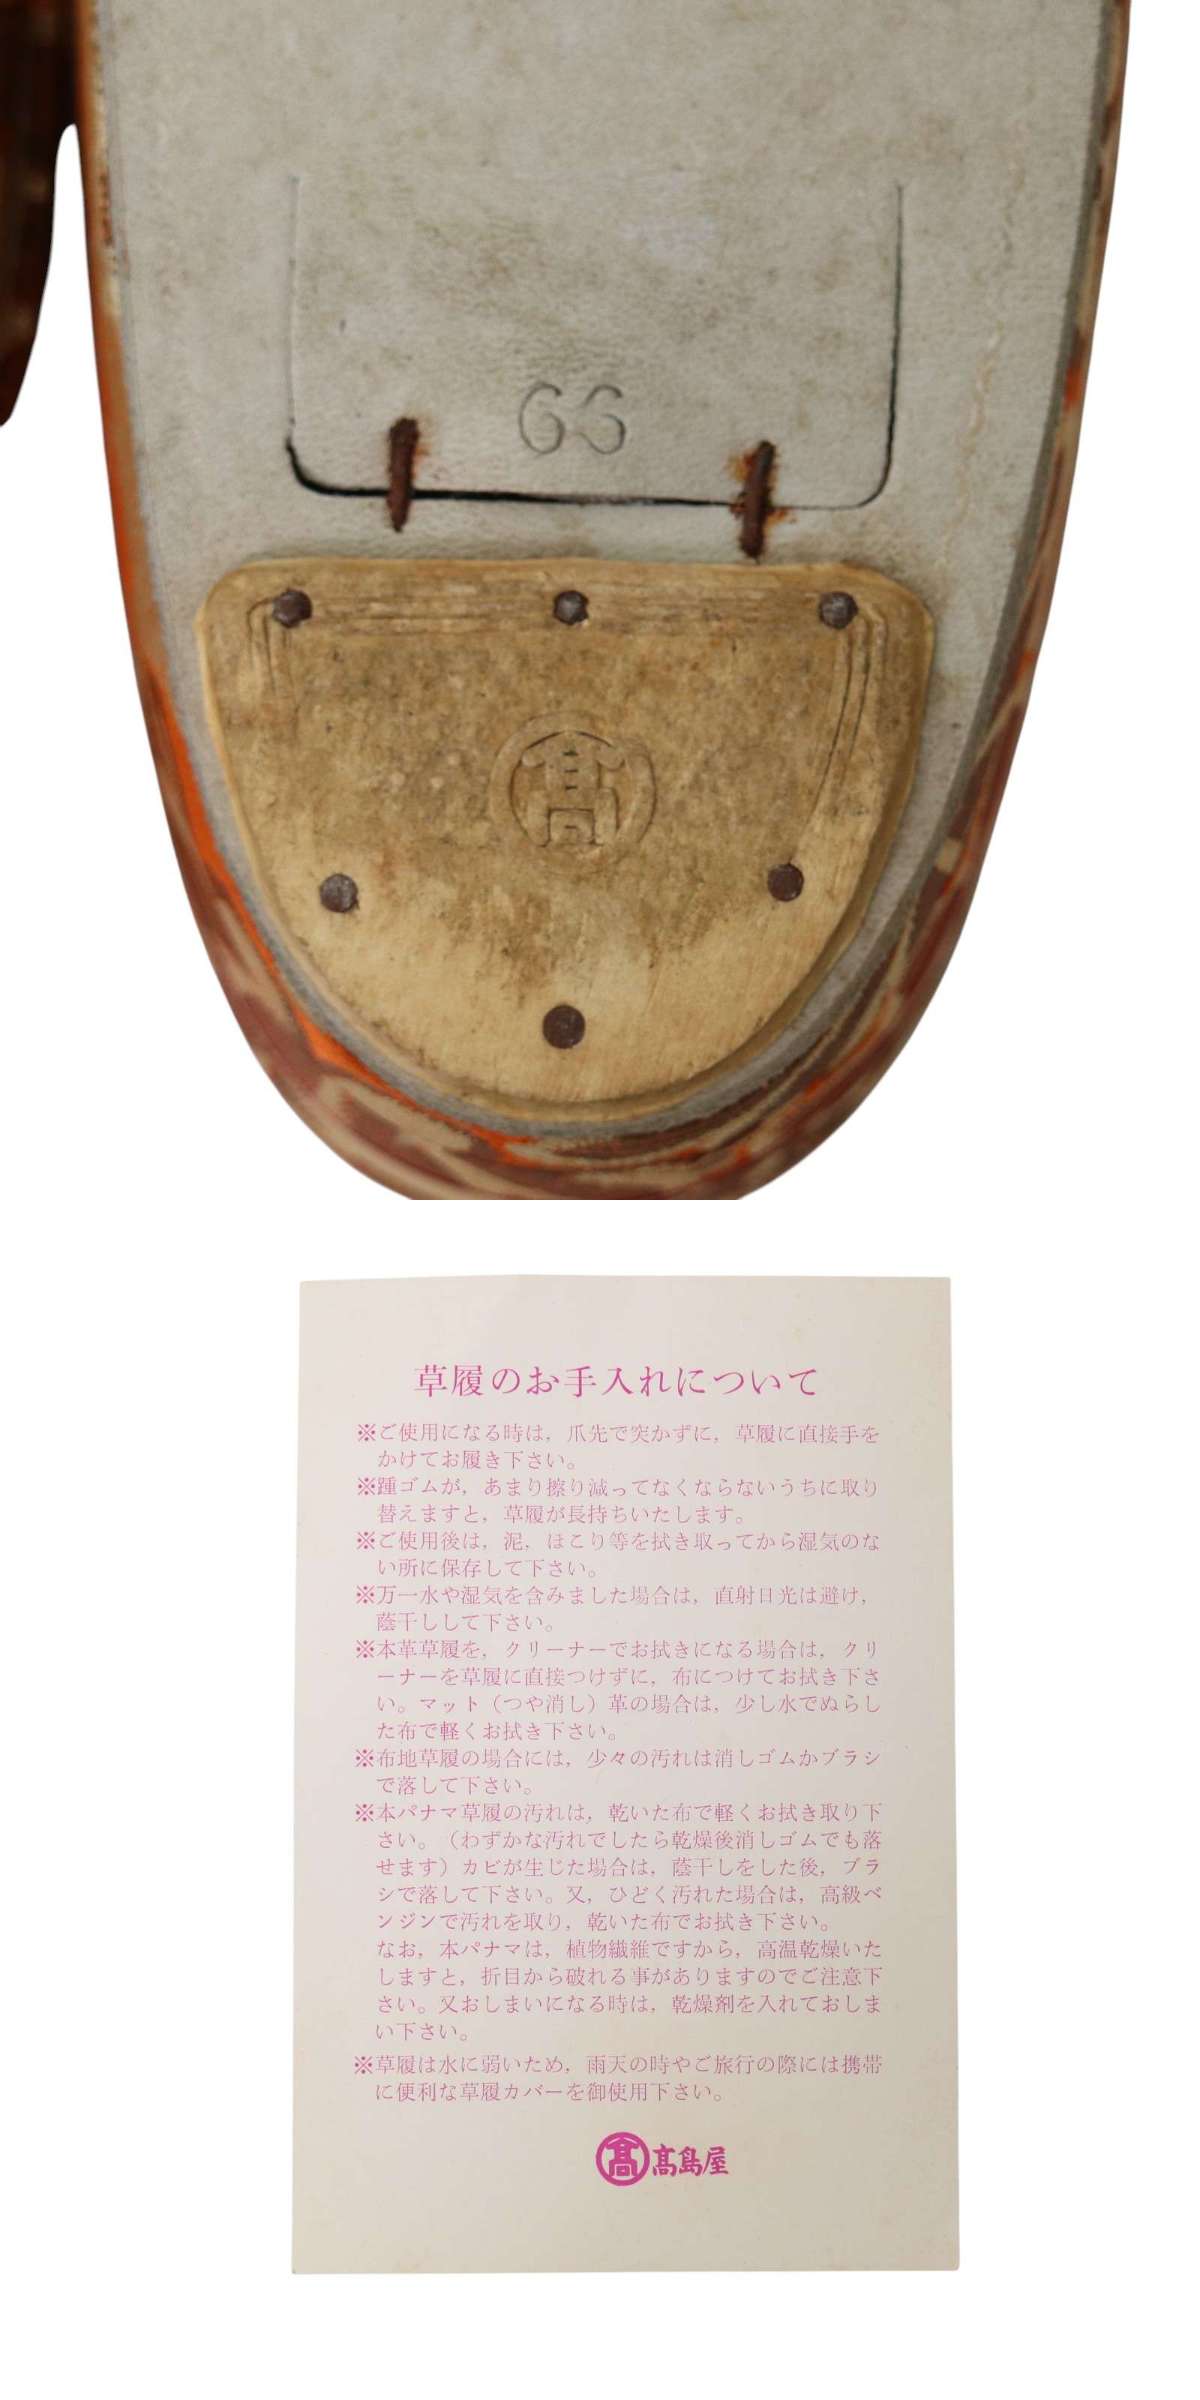 66
髙
草履のお手入れについて
※ご使用になる時は，爪先で突かずに，草履に直接手を
かけてお履き下さい。
※踵ゴムが，あまり擦り減ってなくならないうちに取り
替えますと，草履が長持ちいたします。
※ご使用後は，泥，ほこり等を拭き取ってから湿気のな
い所に保存して下さい。
※万一水や湿気を含みました場合は，直射日光は避け，
蔭干しして下さい。
※本革草履を，クリーナーでお拭きになる場合は，クリ
ーナーを草履に直接つけずに，布につけてお拭き下さ
い。マット（つや消し）革の場合は，少し水でぬらし
た布で軽くお拭き下さい。
※布地草履の場合には，少々の汚れは消しゴムかブラシ
で落して下さい。
※本パナマ草履の汚れは，乾いた布で軽くお拭き取り下
さい。（わずかな汚れでしたら乾燥後消しゴムでも落
せます）カビが生じた場合は，蔭干しをした後，ブラ
シで落して下さい。又，ひどく汚れた場合は，高級ベ
ンジンで汚れを取り，乾いた布でお拭き下さい。
なお，本パナマは，植物繊維ですから，高温乾燥いた
しますと，折目から破れる事がありますのでご注意下
さい。又おしまいになる時は，乾燥剤を入れておしま
い下さい。
※草履は水に弱いため，雨天の時やご旅行の際には携帯
に便利な草履カバーを御使用下さい。
髙 髙島屋